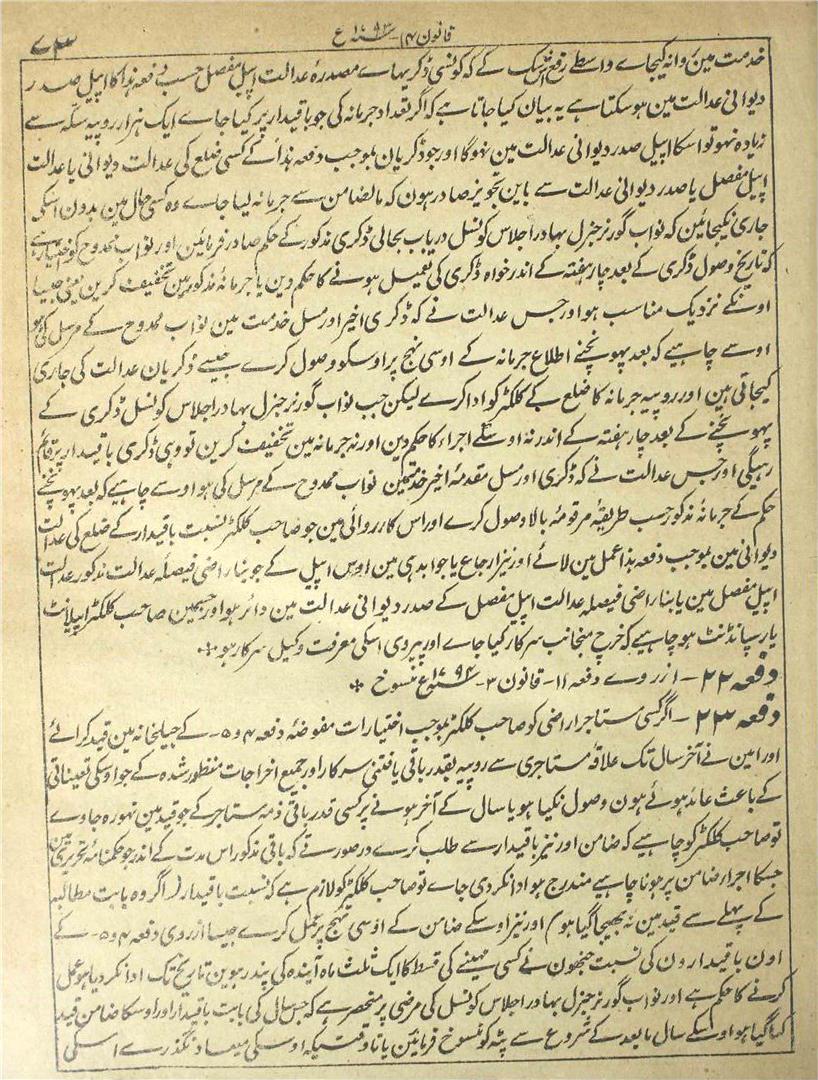 قانون ۱۴ سنہ ۱۷۹۳ع
۷۳
خدمت مین روانہ کیجاے واسطے رفع شک کے کہ کونسی ڈکریہاے مصدرۂ عدالت اپیل مفصل حسب دفعہ ہذا کا اپیل صدر
دیوانی عدالت مین ہوسکتا ہے یہ بیان کیا جاتا ہے کہ اگر تعداد جرمانہ کی جو باقیدار پر کیا جاے ایک ہزار روپیہ سکّہ سے
زیادہ نہو تو اسکا اپیل صدر دیوانی عدالت مین نہوگا اور جو ڈکریان بموجب دفعہ ہذا کے کسی ضلع کی عدالت دیوانی یا عدالت
اپیل مفصل یا صدر دیوانی عدالت سے باین تجویز صادر ہون کہ مالضامن سے جرمانہ لیا جاے وہ کسی حال مین بدون اسکی
جاری نکیجائین کہ نواب گورنر جنرل بہادر اجلاس کونسل درباب بحالی ڈکری مذکور کے حکم صادر فرمائین اور نواب ممدوح کو اختیار ہے
کہ تاریخ وصول ڈکری کے بعد چار ہفتہ کے اندر خواہ ڈکری کی تعمیل ہونے کا حکم دین یا جرمانۂ مذکور مین تخفیف کرین یعنی جیسا
اونکے نزدیک مناسب ہو اور جس عدالت نے کہ ڈکری اخیر اور مسل خدمت مین نواب ممدوح کے مرسل کی ہو
اوسے چاہیے کہ بعد پہونچنے اطلاع جرمانہ کے اوسی نہج پر اوسکو وصول کرے جیسے ڈکریان عدالت کی جاری
کیجاتی ہین اور روپیہ جرمانہ کا ضلع کے کلکٹر کو ادا کرے لیکن جب نواب گورنر جنرل بہادر اجلاس کونسل ڈکری کے
پہونچنے کے بعد چار ہفتہ کے اندر نہ اوسکے اجراء کا حکم دین اور نہ جرمانہ مین تخفیف کرین تو وہی ڈکری باقیدار پر قائم
رہیگی اور جس عدالت نے کہ ڈکری اور مسل مقدمۂ اخیر خدمتمین نواب ممدوح کے مرسل کی ہو اوسے چاہیے کہ بعد پہونچنے
حکم کے جرمانۂ مذکور حسب طریقۂ مرقومۂ بالا وصول کرے اور اس کارروائی مین جو صاحب کلکٹر نسبت باقیدار کے ضلع کی عدالت
دیوانی مین بموجب دفعہ ہذا عمل مین لائے اور نیز ارجاع یا جوابدہی مین اوس اپیل کے جو بناراضی فیصلۂ عدالت مذکور عدالت
اپیل مفصل مین یا بناراضی فیصلہ عدالت اپیل مفصل کے صدر دیوانی عدالت مین دائر ہو اور جسمین صاحب کلکٹر اپیلانٹ
یا رسپانڈنٹ ہو چاہیے کہ خرچ منجانب سرکار کیا جاے اور پیروی اسکی معرفت وکیل سرکار ہو
دفعہ ۲۲ - ازروے دفعہ ۱۱ - قانون ۳ - سنہ ۱۷۹۴ع منسوخ
دفعہ ۲۳ - اگر کسی مستاجر اراضی کو صاحب کلکٹر بموجب اختیارات مفوضۂ دفعہ ۴ و ۵ - کے جیلخانہ مین قید کرائے
اور امین نے آخر سال تک علاقہ مستاجری سے روپیہ بقدر باقی یافتنی سرکار اور جمیع اخراجات منظور شدہ کے جو اوسکی تعیناتی
کے باعث عائد ہوئے ہون وصول نکیا ہو یا سال کے آخر ہونے پر کسی قدر باقی ذمہ مستاجر کے جو قید مین نہو رہ جاوے
تو صاحب کلکٹر کو چاہیے کہ ضامن اور نیز باقیدار سے طلب کرے درصورتے کہ باقی مذکور اس مدت کے اندر جو حکمنامۂ تحریری مین
جسکا اجراء ضامن پر ہونا چاہیے مندرج ہو ادا نکر دی جاے تو صاحب کلکٹر کو لازم ہے کہ نسبت باقیدار (اگر وہ بابت مطالبہ
کے پہلے سے قید مین نہ بھیجا گیا ہو) اور نیز اوسکے ضامن کے اوسی نہج پر عمل کرے جیسا ازروی دفعہ ۴ و ۵ - کے
اون باقیدارون کی نسبت جنھون نے کسی مہینے کی قسط کا ایک ثلث ماہ آیندہ کی پندرہوین تاریخ تک ادا نکر دیا ہو عمل
کرنے کا حکم ہے اور نواب گورنر جنرل بہادر اجلاس کونسل کی مرضی پر منحصر ہے کہ جس سال کی بابت باقیدار اور اوسکا ضامن قید
کیا گیا ہو اوسکے سال مابعد کے شروع سے پٹہ کو منسوخ فرمائین یا تاوقتیکہ اوسکی میعاد نگذرے اسکی